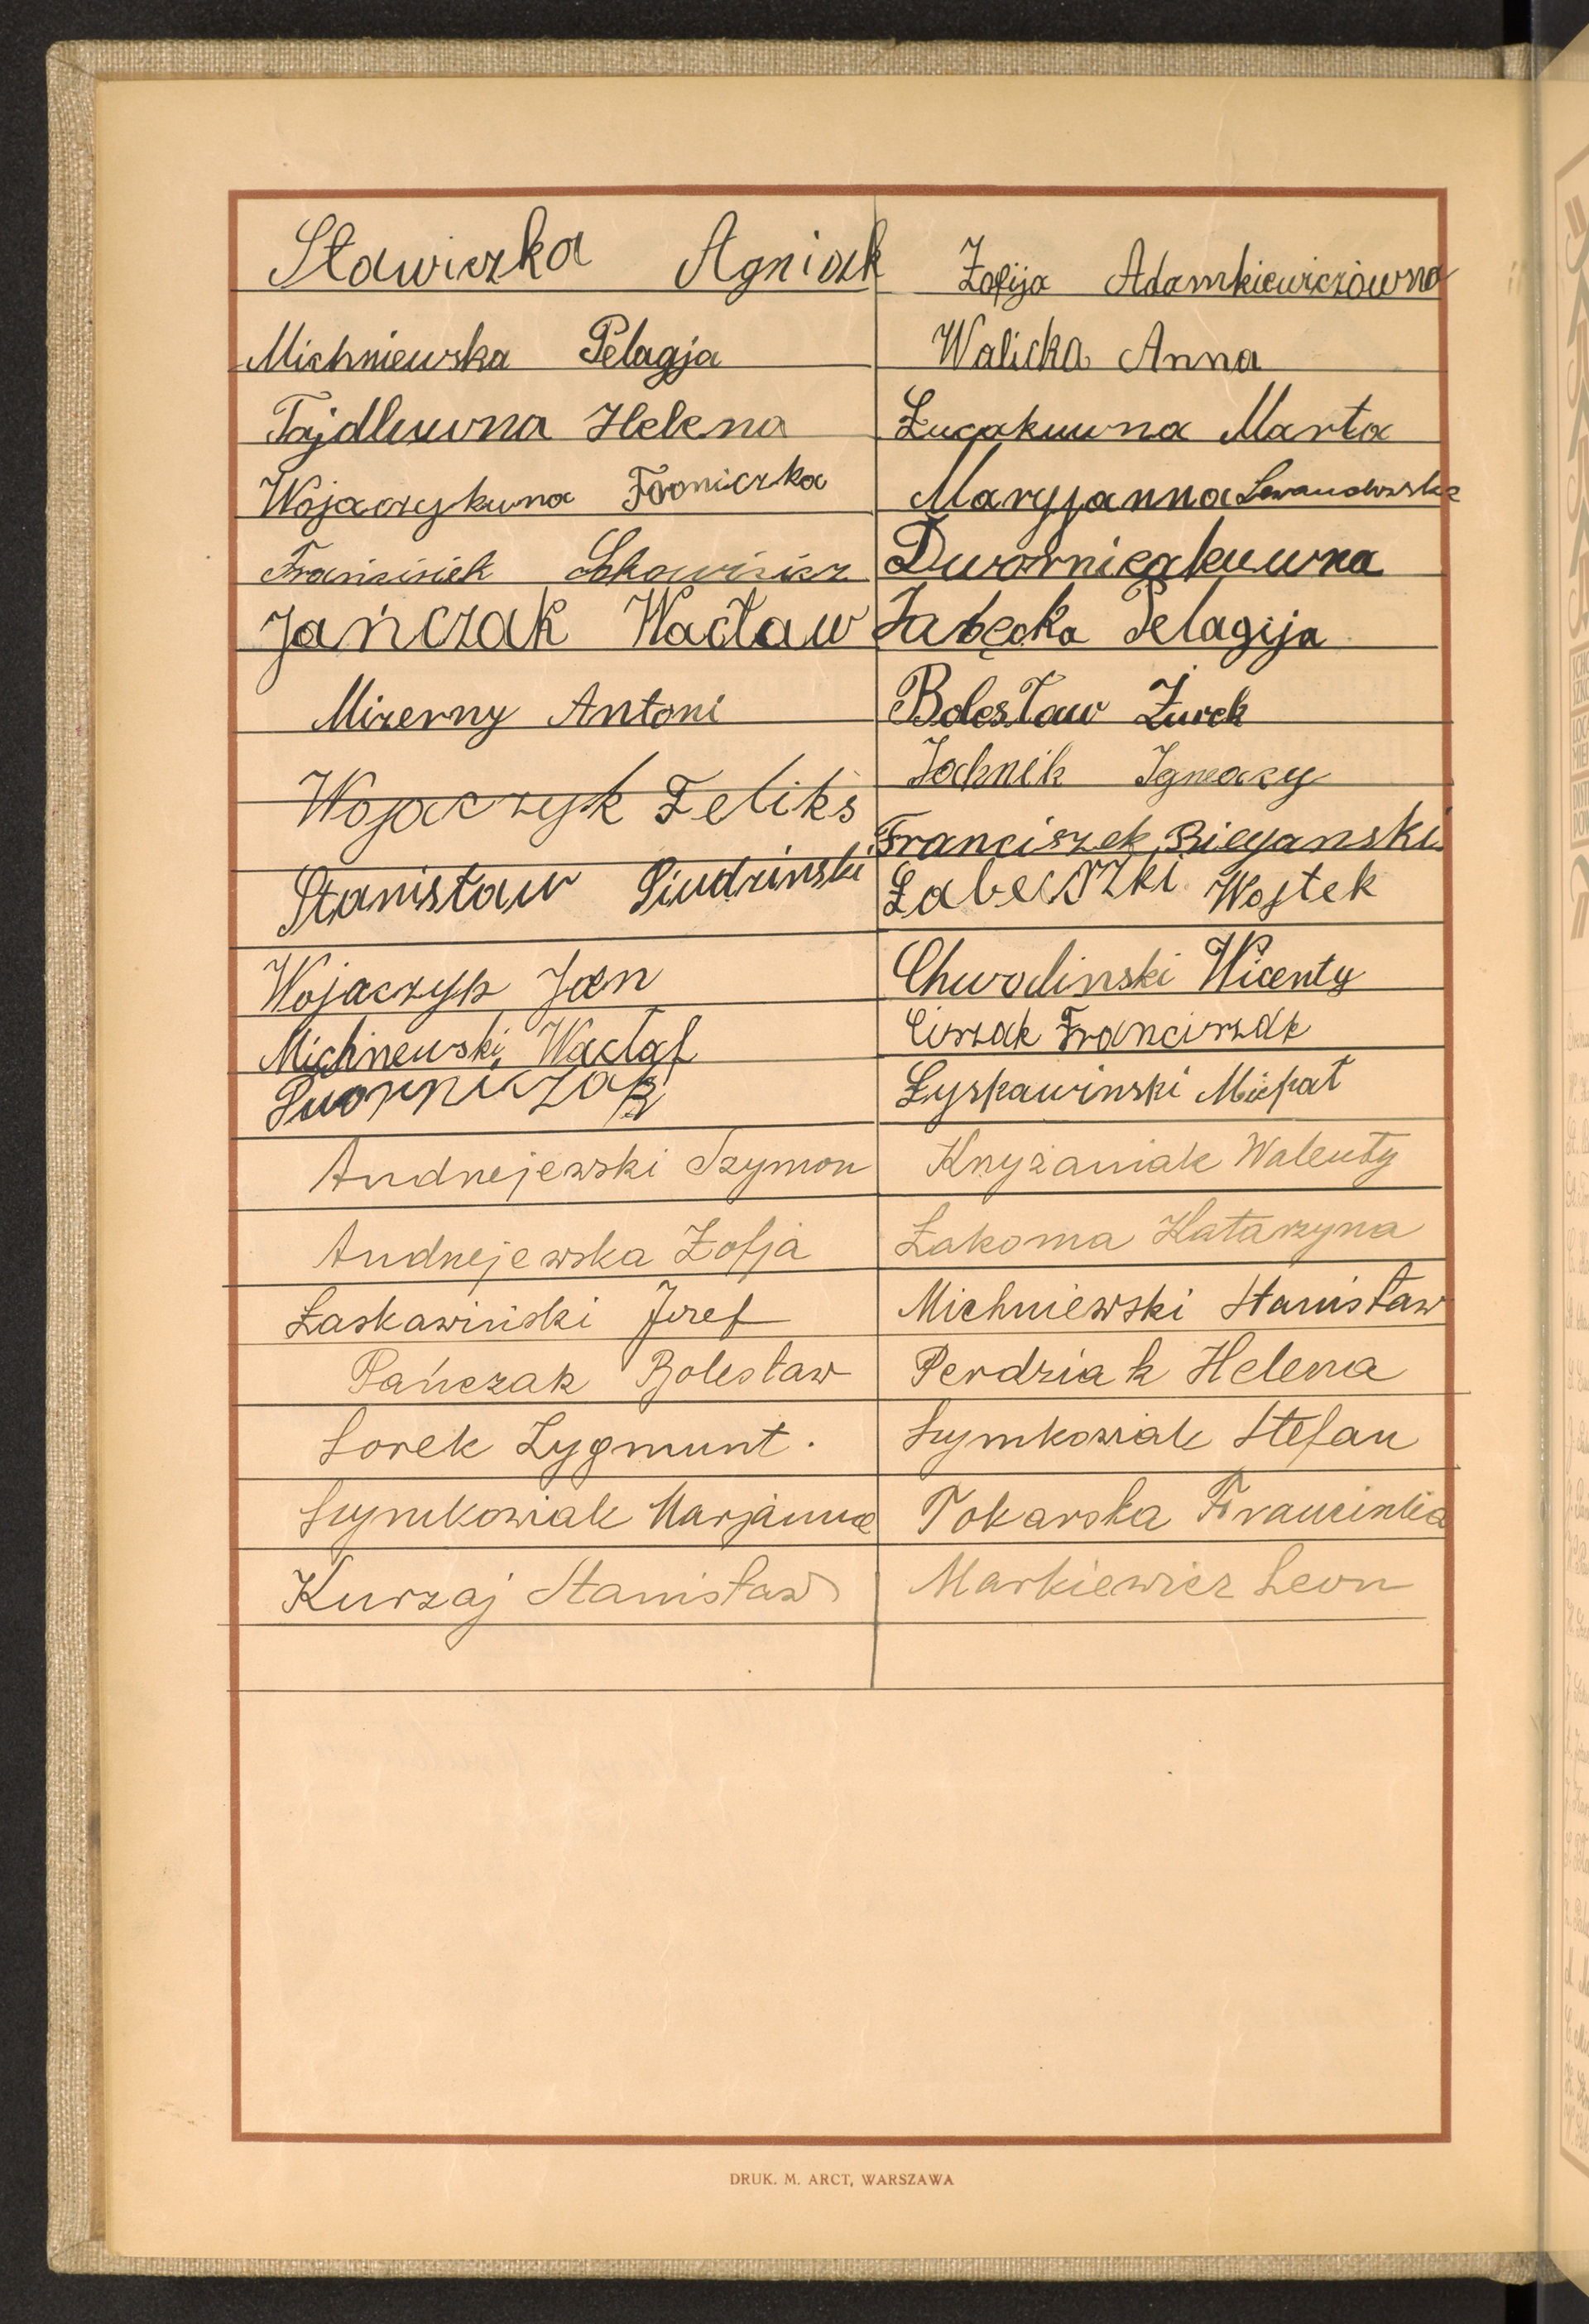 Stawiczka Agnisk
Michniewska Pelagja
Tajdluwna Helena
Wojaczykuwna
Franciszek
Jańczak Wacław
Mizerny Antoni
Wojaczyk Feliks
Stanisław Siudzinski
Wojaczyk Jan
Michnewski Wacłaf
Dworniczak
Andrzejewski Szymon
Andrzejewska Zofja
Łaskawiński Józef
Pańczak Bolesław
Sorek Zygmunt.
Szymkowiak Marjanna
Kurzaj Stanisław
Zofija Adamkiewiczówna
Walicka Anna
Łuczakuwna Marta
Maryjanna Lewandowska
Dwornicakuwna
Pelagija
Bolesław Żurek
Jachnik Ignacy
Franciszek Bieganski
Łabeczki Wojtek
Chwolinski Wicenty
Ciszak Franciszek
Łyskawinski Michał
Krzyżaniak Walenty
Łakoma Katarzyna
Michniewski Stanisław
Perdziak Helena
Szymkowiak Stefan
Tokarska Franciszka
Markiewicz Leon
DRUK. M. ARCT, WARSZAWA